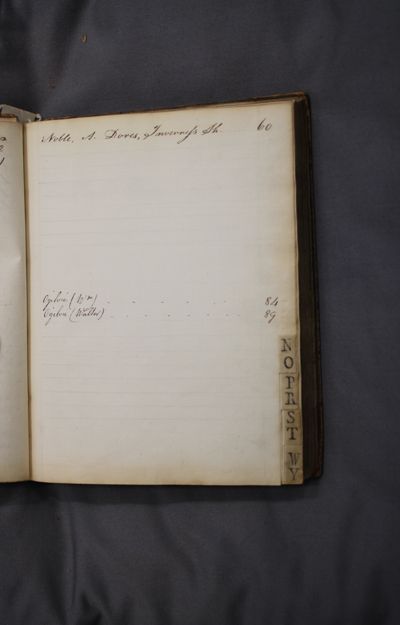 Noble, A. Dores, Invernefs Sh. 60
Ogilvie (Wm) 84
Ogilvie (Walter) 89
N
O
P
R
S
T
W
Y